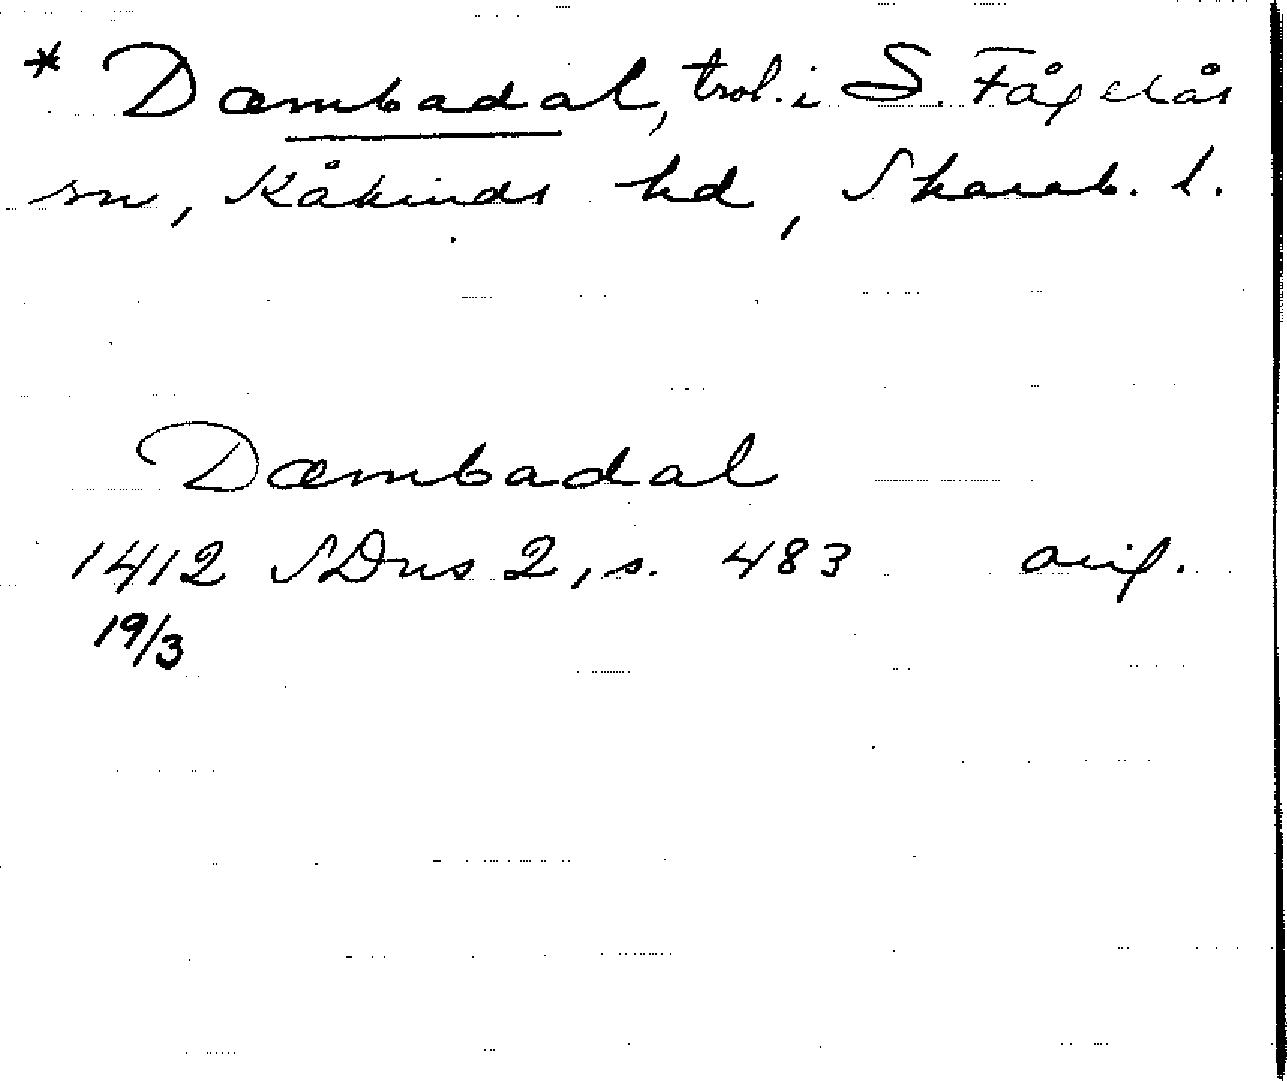 * Dæmbadal, trol. i S. Fågelås
sn, Kåkinds hd, Skarab. l.
Dæmbadal
1412 SDns 2, s. 483 orig.
19/3